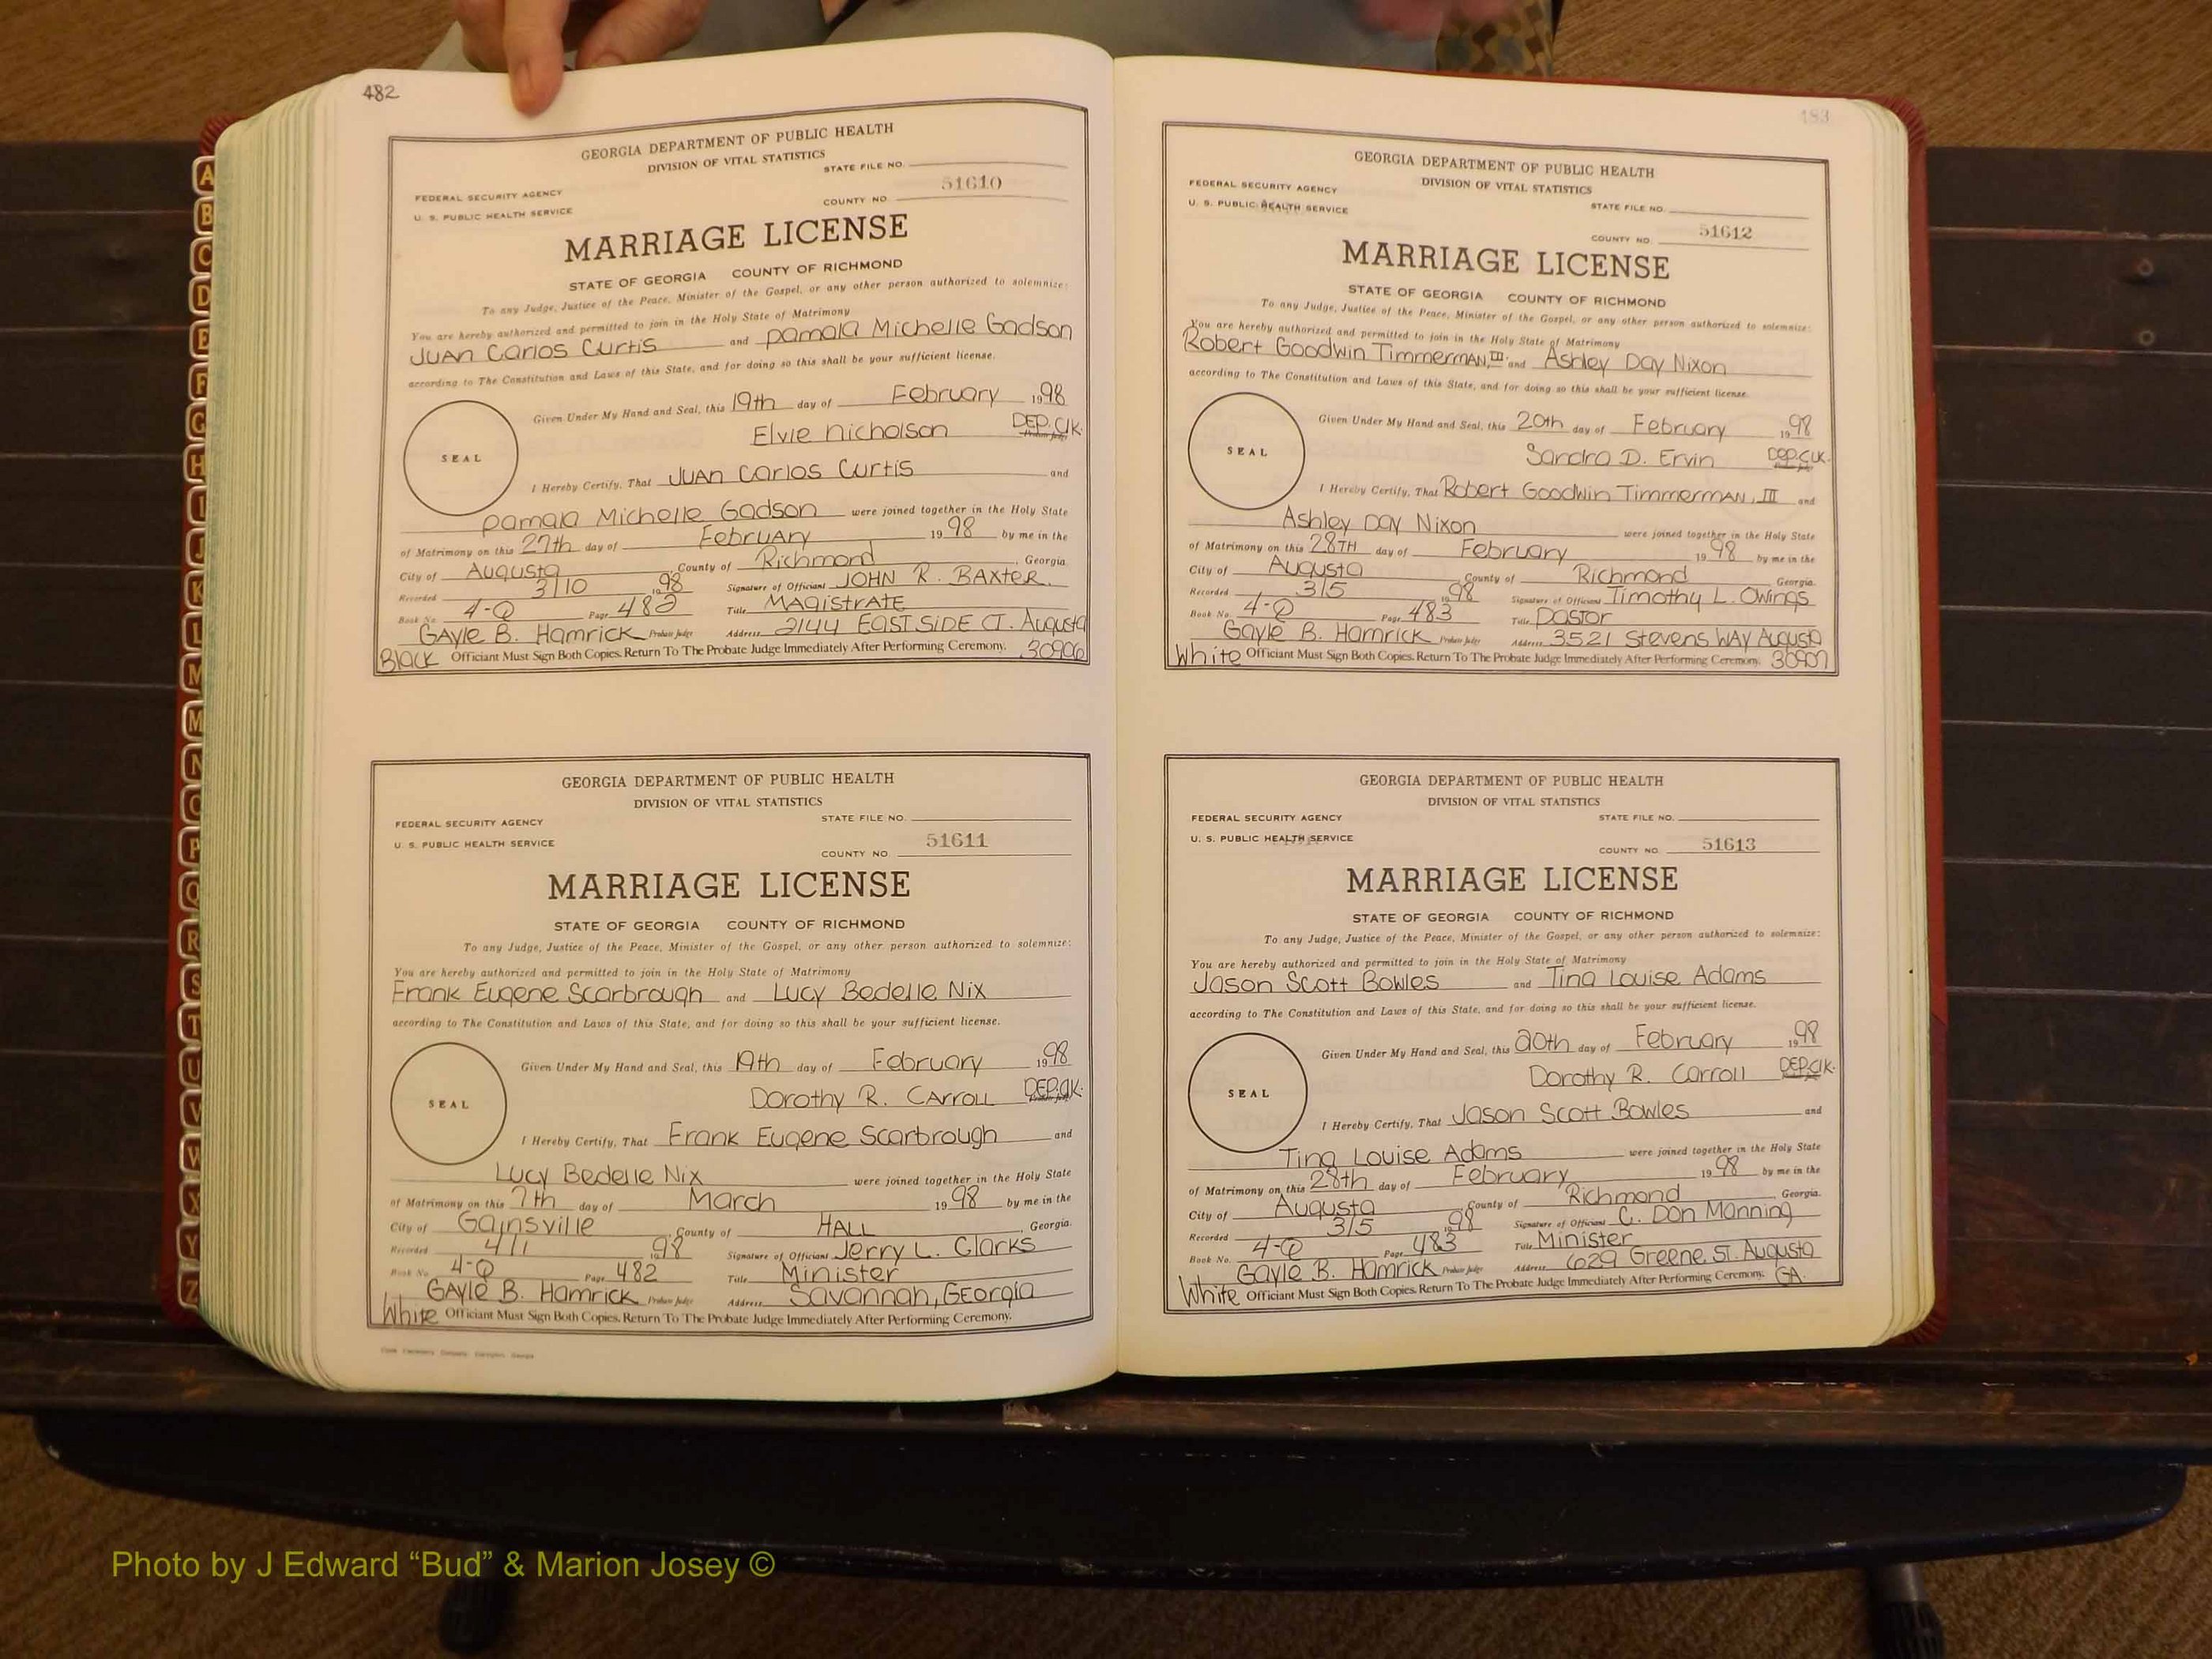 482
GEORGIA DEPARTMENT OF PUBLIC HEALTH
DIVISION OF VITAL STATISTICS
STATE FILE NO.
FEDERAL SECURITY AGENCY
51610
U. S. PUBLIC HEALTH SERVICE
COUNTY NO
MARRIAGE LICENSE
STATE OF GEORGIA COUNTY OF RICHMOND
To any Judge, Justice of the Peace, Minister of the Gospel, or any other person authorized to solemnize:
You are hereby authorized and permitted to join in the Holy State of Matrimony
Juan Carlos Curtis and Pamala Michelle Gadson
according to The Constitution and Laws of this State, and for doing so this shall be your sufficient license.
Given Under My Hand and Seal, this 19th day of February 1998
Elvie Nicholson DEP. Clk.
SEAL
I Hereby Certify, That Juan Carlos Curtis and
Pamala Michelle Gadson were joined together in the Holy State
of Matrimony on this 27th day of February 1998 by me in the
City of Augusta, County of Richmond, Georgia
Recorded 3/10 1998 Signature of Officiant JOHN R. BAXTER.
Book No 4-Q Page 482 Title MAGISTRATE
Gayle B. Hamrick Probate Judge Address 2144 EAST SIDE CT. Augusta
Black Officiant Must Sign Both Copies. Return To The Probate Judge Immediately After Performing Ceremony. 30906
GEORGIA DEPARTMENT OF PUBLIC HEALTH
DIVISION OF VITAL STATISTICS
STATE FILE NO.
FEDERAL SECURITY AGENCY
51611
U. S. PUBLIC HEALTH SERVICE
COUNTY NO
MARRIAGE LICENSE
STATE OF GEORGIA COUNTY OF RICHMOND
To any Judge, Justice of the Peace, Minister of the Gospel, or any other person authorized to solemnize:
You are hereby authorized and permitted to join in the Holy State of Matrimony
Frank Eugene Scarbrough and Lucy Bedelle Nix
according to The Constitution and Laws of this State, and for doing so this shall be your sufficient license.
Given Under My Hand and Seal, this 19th day of February 1998
Dorothy R. Carroll DEP. Clk.
SEAL
I Hereby Certify, That Frank Eugene Scarbrough and
Lucy Bedelle Nix were joined together in the Holy State
of Matrimony on this 7th day of March 1998 by me in the
City of Gainsville, County of HALL, Georgia
Recorded 4/1 1998 Signature of Officiant Jerry L. Clarks
Book No 4-Q Page 482 Title Minister
Gayle B. Hamrick Probate Judge Address Savannah, Georgia
White Officiant Must Sign Both Copies. Return To The Probate Judge Immediately After Performing Ceremony.
483
GEORGIA DEPARTMENT OF PUBLIC HEALTH
DIVISION OF VITAL STATISTICS
FEDERAL SECURITY AGENCY
STATE FILE NO.
U. S. PUBLIC HEALTH SERVICE
51612
COUNTY NO.
MARRIAGE LICENSE
STATE OF GEORGIA COUNTY OF RICHMOND
To any Judge, Justice of the Peace, Minister of the Gospel, or any other person authorized to solemnize:
You are hereby authorized and permitted to join in the Holy State of Matrimony
Robert Goodwin Timmerman, III and Ashley Day Nixon
according to The Constitution and Laws of this State, and for doing so this shall be your sufficient license.
Given Under My Hand and Seal, this 20th day of February 1998
Sandra D. Ervin Dep. Clk.
SEAL
I Hereby Certify, That Robert Goodwin Timmerman, III and
Ashley Day Nixon were joined together in the Holy State
of Matrimony on this 28TH day of February 1998 by me in the
City of Augusta, County of Richmond Georgia.
Recorded 3/5 1998 Signature of Officiant Timothy L. Owings
Book No. 4-Q Page 483 Title Pastor
Gayle B. Hamrick Probate Judge Address 3521 Stevens Way Augusta
White Officiant Must Sign Both Copies. Return To The Probate Judge Immediately After Performing Ceremony. 30907
GEORGIA DEPARTMENT OF PUBLIC HEALTH
DIVISION OF VITAL STATISTICS
FEDERAL SECURITY AGENCY
STATE FILE NO.
U. S. PUBLIC HEALTH SERVICE
51613
COUNTY NO.
MARRIAGE LICENSE
STATE OF GEORGIA COUNTY OF RICHMOND
To any Judge, Justice of the Peace, Minister of the Gospel, or any other person authorized to solemnize:
You are hereby authorized and permitted to join in the Holy State of Matrimony
Jason Scott Bowles and Tina Louise Adams
according to The Constitution and Laws of this State, and for doing so this shall be your sufficient license.
Given Under My Hand and Seal, this 20th day of February 1998
Dorothy R. Carroll DEP. Clk.
SEAL
I Hereby Certify, That Jason Scott Bowles and
Tina Louise Adams were joined together in the Holy State
of Matrimony on this 28th day of February 1998 by me in the
City of Augusta, County of Richmond, Georgia.
Recorded 3/5 1998 Signature of Officiant C. Don Manning
Book No. 4-Q Page 483 Title Minister
Gayle B. Hamrick Probate Judge Address 629 Greene St. Augusta
White Officiant Must Sign Both Copies. Return To The Probate Judge Immediately After Performing Ceremony. GA.
A
B
C
D
E
F
G
H
I
J
K
L
M
M
N
O
P
Q
R
S
T
U
V
W
X
Y
Z
Photo by J Edward “Bud” & Marion Josey ©